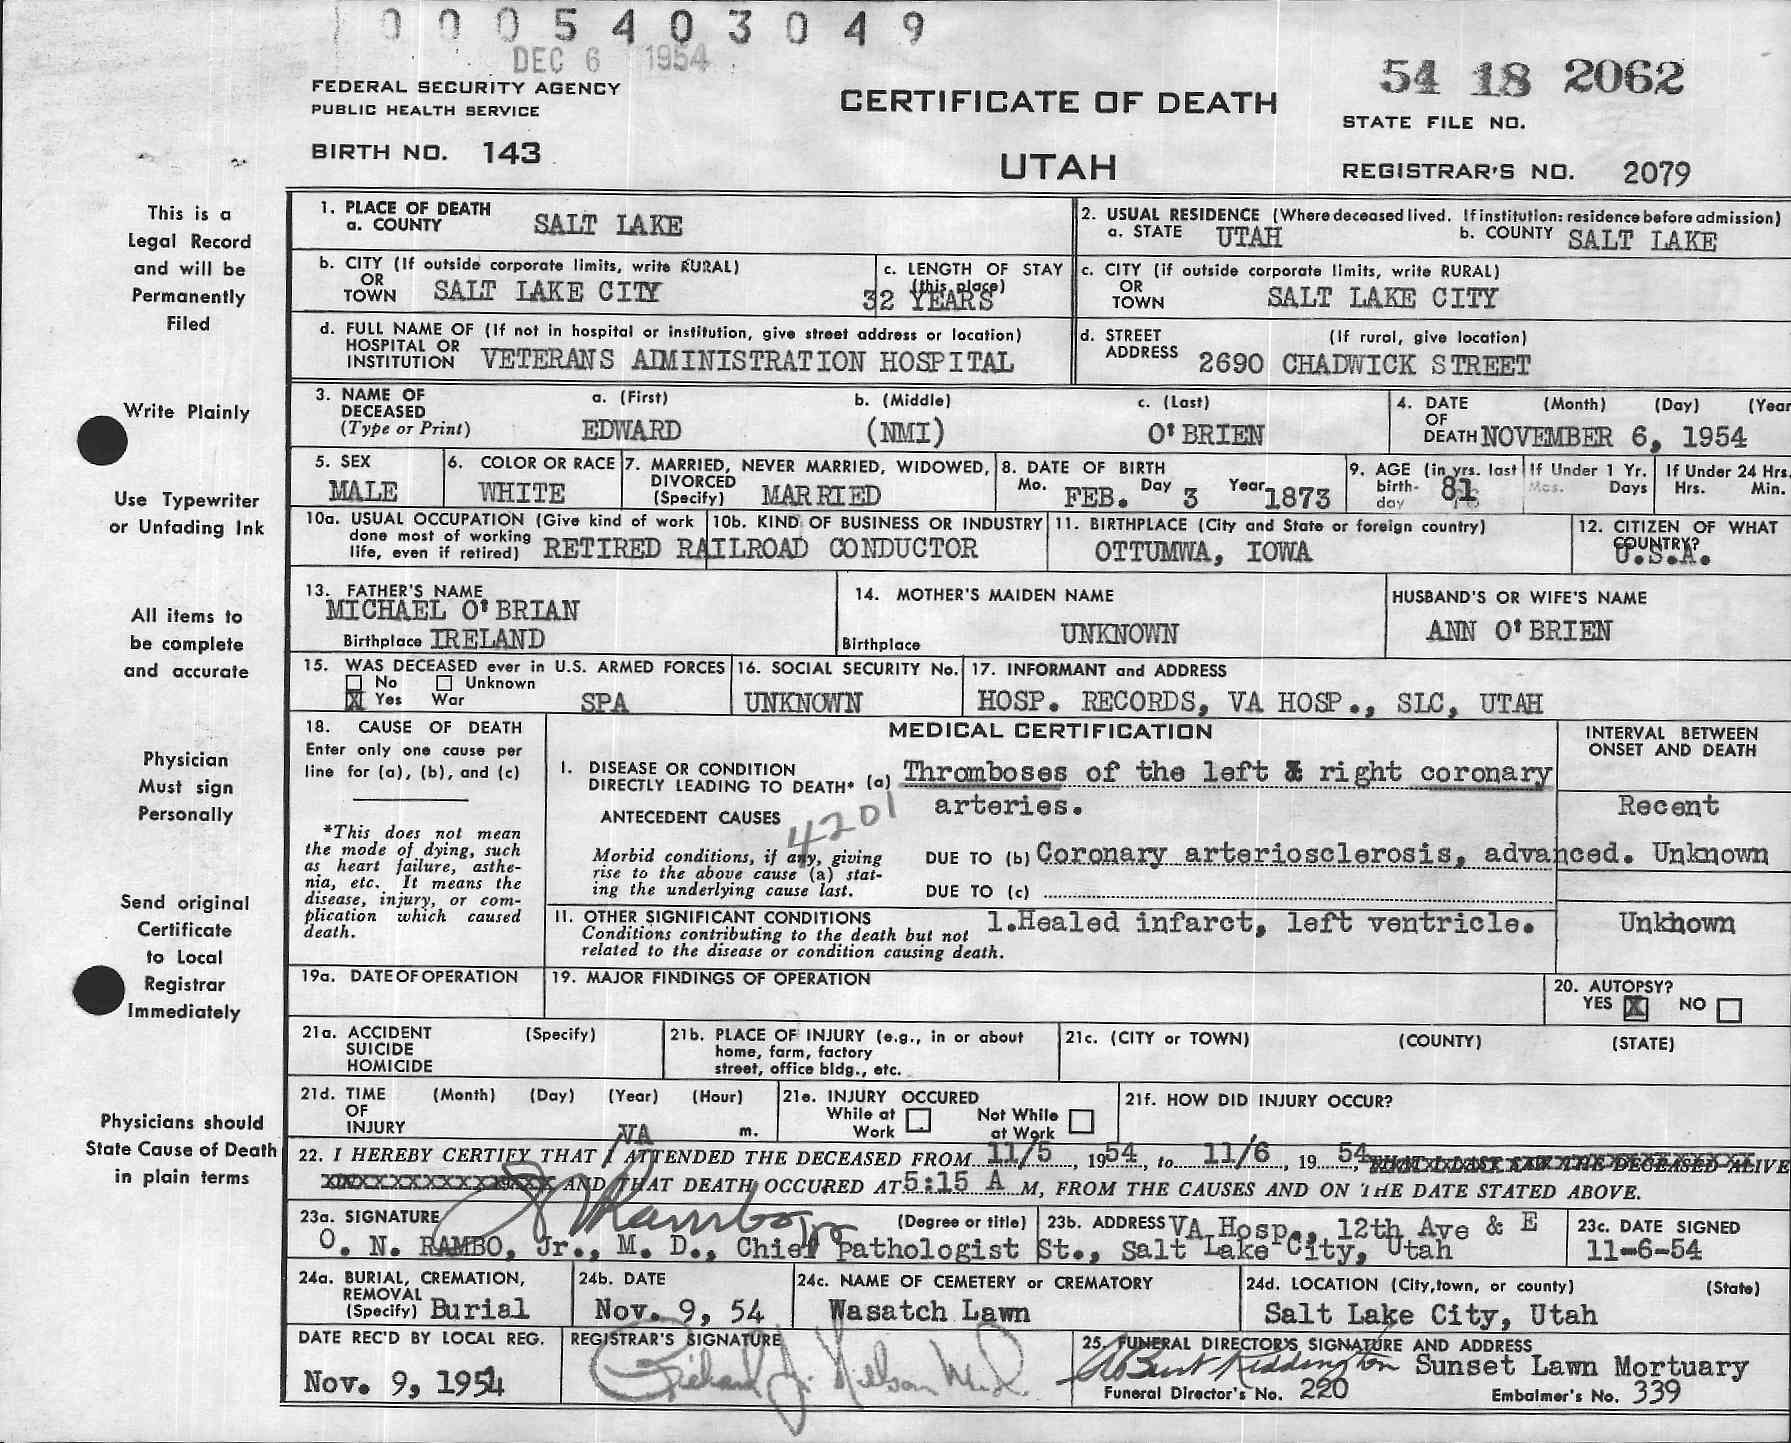 0005403049
DEC 6 1954
54 18 2062
FEDERAL SECURITY AGENCY
PUBLIC HEALTH SERVICE
CERTIFICATE OF DEATH
STATE FILE NO.
BIRTH NO. 143
UTAH
REGISTRAR'S NO. 2079
This is a
Legal Record
and will be
Permanently
Filed
Write Plainly
Use Typewriter
or Unfading Ink
All items to
be complete
and accurate
Physician
Must sign
Personally
Send original
Certificate
to Local
Registrar
Immediately
Physicians should
State Cause of Death
in plain terms
1. PLACE OF DEATH
a. COUNTY SALT LAKE
2. USUAL RESIDENCE (Where deceased lived. If institution: residence before admission)
a. STATE UTAH b. COUNTY SALT LAKE
b. CITY (If outside corporate limits, write RURAL)
OR
TOWN SALT LAKE CITY
c. LENGTH OF STAY
(this place)
32 YEARS
c. CITY (if outside corporate limits, write RURAL)
OR
TOWN SALT LAKE CITY
d. FULL NAME OF (If not in hospital or institution, give street address or location)
HOSPITAL OR
INSTITUTION VETERANS ADMINISTRATION HOSPITAL
d. STREET (If rural, give location)
ADDRESS 2690 CHADWICK STREET
3. NAME OF
DECEASED
(Type or Print)
a. (First) b. (Middle) c. (Last)
EDWARD (NMI) O'BRIEN
4. DATE (Month) (Day) (Year
OF
DEATH NOVEMBER 6, 1954
5. SEX
MALE
6. COLOR OR RACE
WHITE
7. MARRIED, NEVER MARRIED, WIDOWED,
DIVORCED
(Specify) MARRIED
8. DATE OF BIRTH
Mo. FEB. Day 3 Year 1873
9. AGE (in yrs. last
birth-
day 81
If Under 1 Yr.
Mos. Days
If Under 24 Hrs.
Hrs. Min.
10a. USUAL OCCUPATION (Give kind of work
done most of working
life, even if retired)
10b. KIND OF BUSINESS OR INDUSTRY
RETIRED RAILROAD CONDUCTOR
11. BIRTHPLACE (City and State or foreign country)
OTTUMWA, IOWA
12. CITIZEN OF WHAT
COUNTRY?
U.S.A.
13. FATHER'S NAME
MICHAEL O'BRIAN
Birthplace IRELAND
14. MOTHER'S MAIDEN NAME
UNKNOWN
Birthplace
HUSBAND'S OR WIFE'S NAME
ANN O'BRIEN
15. WAS DECEASED ever in U.S. ARMED FORCES
No Unknown
X Yes War SPA
16. SOCIAL SECURITY No.
UNKNOWN
17. INFORMANT and ADDRESS
HOSP. RECORDS, VA HOSP., SLC, UTAH
18. CAUSE OF DEATH
Enter only one cause per
line for (a), (b), and (c)
*This does not mean
the mode of dying, such
as heart failure, asthe-
nia, etc. It means the
disease, injury, or com-
plication which caused
death.
MEDICAL CERTIFICATION
INTERVAL BETWEEN
ONSET AND DEATH
I. DISEASE OR CONDITION
DIRECTLY LEADING TO DEATH* (a) Thromboses of the left & right coronary
arteries.
Recent
ANTECEDENT CAUSES
4201
Morbid conditions, if any, giving
rise to the above cause (a) stat-
ing the underlying cause last.
DUE TO (b) Coronary arteriosclerosis, advanced. Unknown
DUE TO (c)
II. OTHER SIGNIFICANT CONDITIONS
Conditions contributing to the death but not
related to the disease or condition causing death.
1.Healed infarct, left ventricle. Unkhown
19a. DATE OF OPERATION
19. MAJOR FINDINGS OF OPERATION
20. AUTOPSY?
YES X NO
21a. ACCIDENT (Specify)
SUICIDE
HOMICIDE
21b. PLACE OF INJURY (e.g., in or about
home, farm, factory
street, office bldg., etc.
21c. (CITY or TOWN) (COUNTY) (STATE)
21d. TIME (Month) (Day) (Year) (Hour)
OF
INJURY m.
21e. INJURY OCCURED
While at Work
Not While at Work
21f. HOW DID INJURY OCCUR?
VA
22. I HEREBY CERTIFY THAT I ATTENDED THE DECEASED FROM 11/5, 1954, to 11/6, 19 54, THAT I LAST SAW THE DECEASED ALIVE
AND THAT DEATH OCCURED AT 5:15 A M, FROM THE CAUSES AND ON THE DATE STATED ABOVE.
23a. SIGNATURE (Degree or title)
O N Rambo Jr
O. N. RAMBO, Jr., M. D., Chief Pathologist
23b. ADDRESS VA Hosp., 12th Ave & E
St., Salt Lake City, Utah
23c. DATE SIGNED
11-6-54
24a. BURIAL, CREMATION,
REMOVAL
(Specify) Burial
24b. DATE
Nov. 9, 54
24c. NAME OF CEMETERY or CREMATORY
Wasatch Lawn
24d. LOCATION (City, town, or county) (State)
Salt Lake City, Utah
DATE REC'D BY LOCAL REG.
Nov. 9, 1954
REGISTRAR'S SIGNATURE
Richard J. Nielson M.D.
25. FUNERAL DIRECTOR'S SIGNATURE AND ADDRESS
Sunset Lawn Mortuary
Funeral Director's No. 220 Embalmer's No. 339